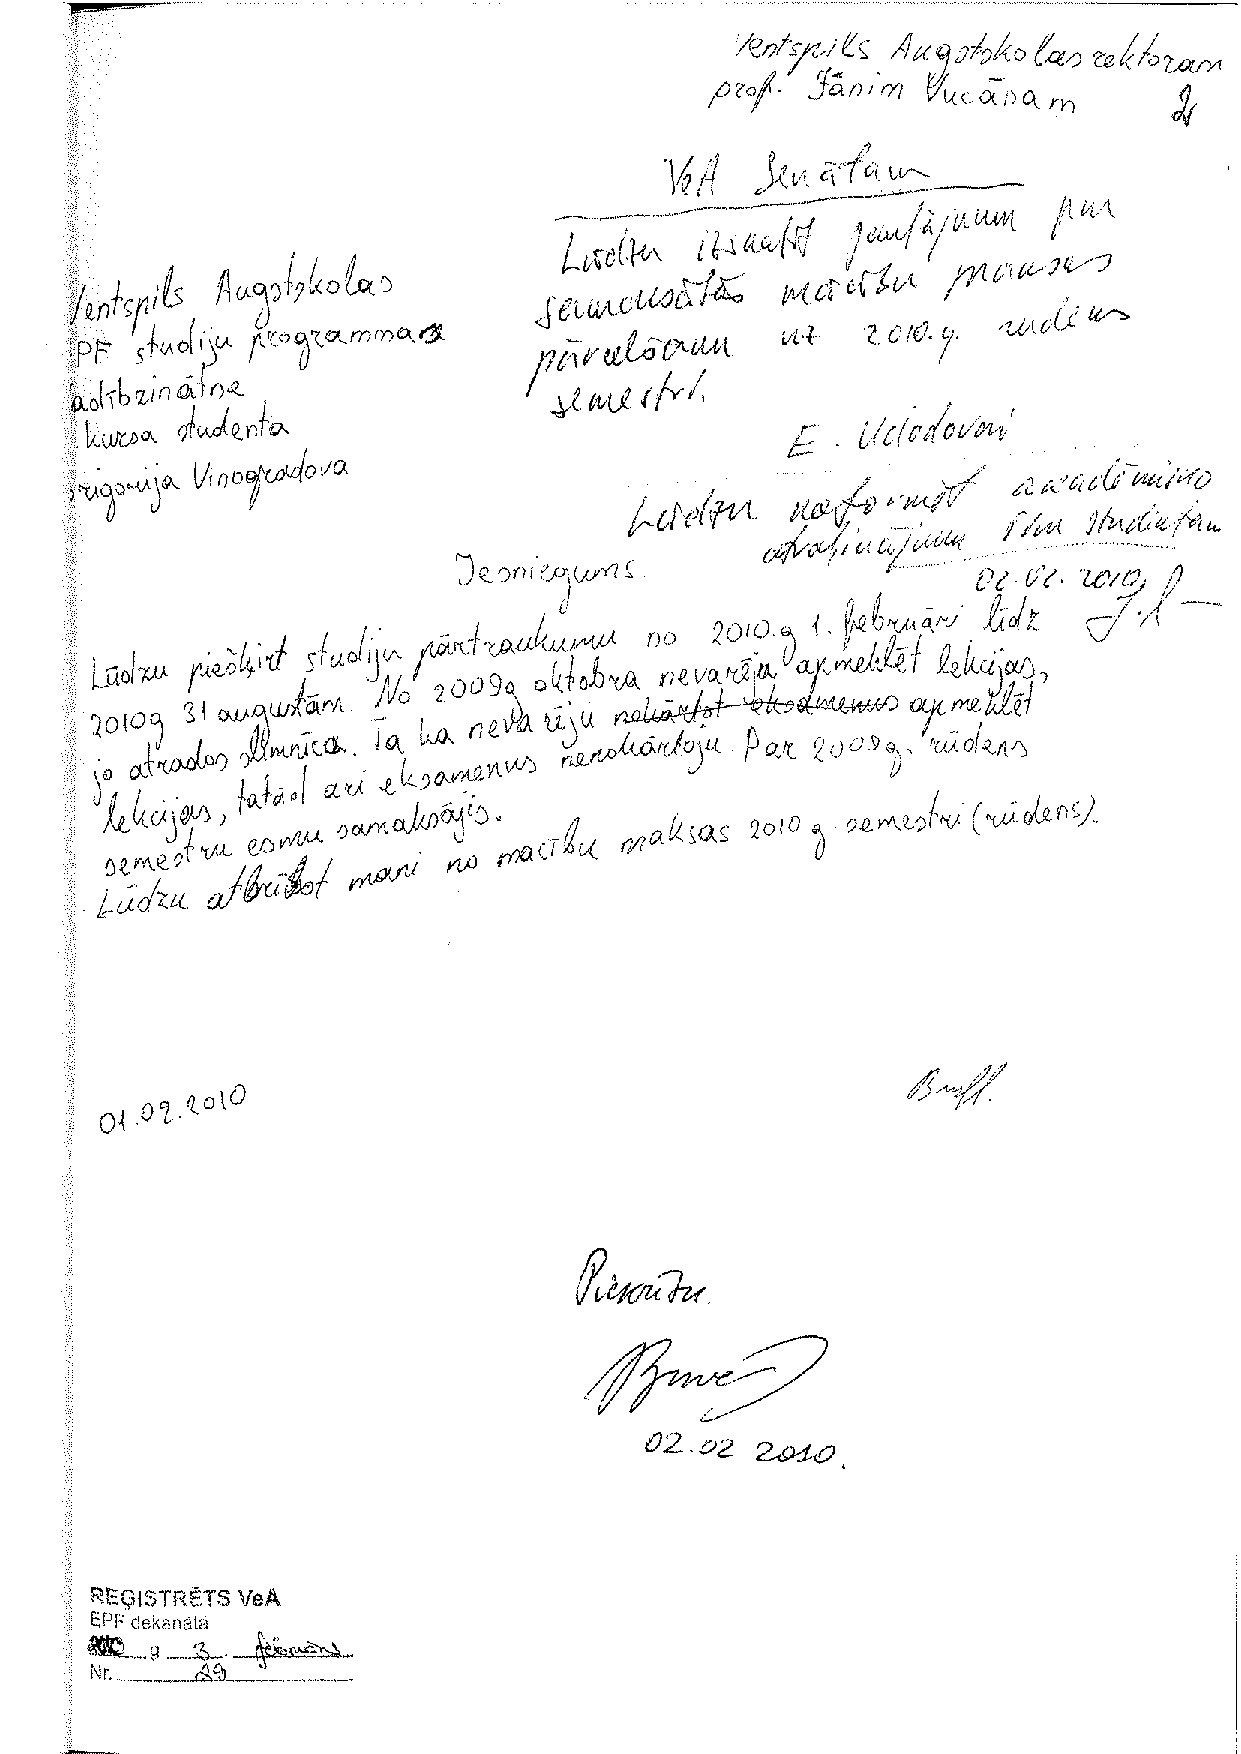 Ventspils Augstskolas rektoram
prof. Jānim Vucānam
VeA Senātam
Lūdzu izskatīt jautājumu par
samaksātās mācību maksas
pārcelšanu uz 2010.g. rudens
semestri.
Ventspils Augstskolas
EPF studiju programmas
vadībzinātne
kursa studenta
Grigorija Vinogradova
E. Uclodovai
Lūdzu noformēt akadēmisko
atvaļinājumu šim studentam
02.02.2010
Iesniegums.
Lūdzu piešķirt studiju pārtraukumu no 2010.g 1. februāri līdz
2010g 31 augustām. No 2009g oktobra nevarēja apmeklēt lekcijas,
jo atrados slimnīcā. Tā kā nevarēju nokārtot eksāmenus apmeklēt
lekcijas, tatād arī eksāmenus nenokārtoju. Par 2009g. rūdens
semestru esmu samaksājis.
Lūdzu atbrīvot mani no macību maksas 2010 g. semestri (rūdens).
01.02.2010
Piekrītu.
02.02 2010.
REĢISTRĒTS VeA
EPF dekanātā
2010 g 3 februāris
Nr. 29